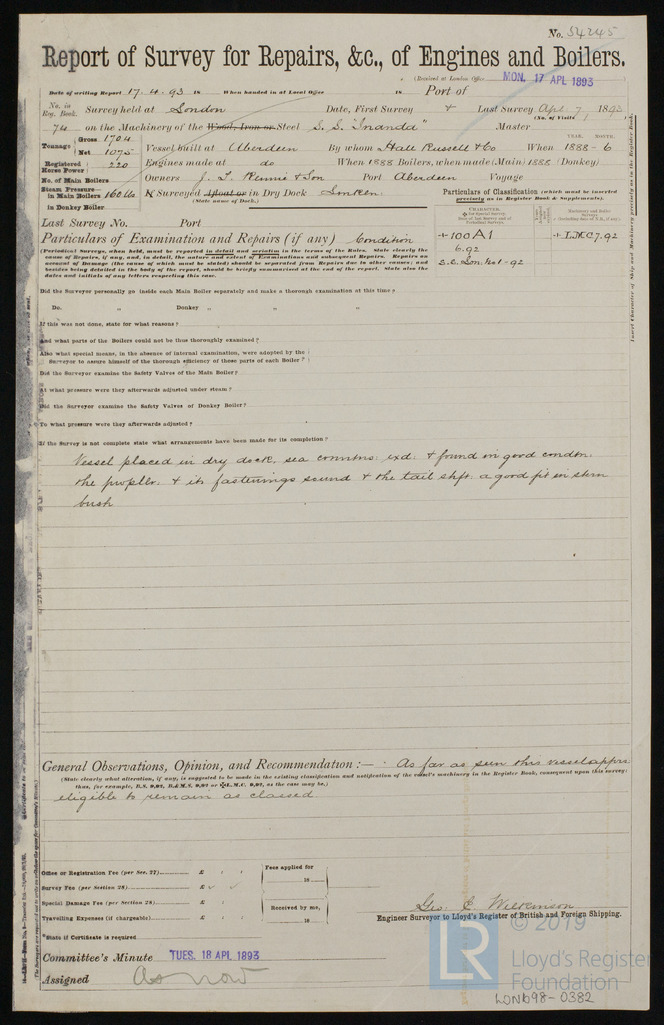 No. 54245
Report of Survey for Repairs, &c., of Engines and Boilers.
(Received at London Office MON. 17 APL 1893
Date of writing Report 17.4.93 18 When handed in at Local Office 18 Port of
No. in Reg. Book. Survey held at London Date, First Survey & Last Survey Apl 7 1893
(No. of Visits )
74 on the Machinery of the Wood, Iron or Steel S.S. "Inanda" Master
Tonnage Gross 1704
Net 1075 Vessel built at Aberdeen By whom Hall Russell & Co When YEAR. MONTH. 1888-6
Registered Horse Power 220 Engines made at do When 1888 Boilers, when made (Main) 1888 (Donkey)
No. of Main Boilers Owners J. T. Rennie & Son Port Aberdeen Voyage
Steam Pressure in Main Boilers 160 lbs If Surveyed Afloat or in Dry Dock Limken
(State name of Dock.)
in Donkey Boiler
Particulars of Classification (which must be inserted precisely as in Register Book & Supplements).
Last Survey No. Port
CHARACTER.
Particulars of Examination and Repairs (if any) Condition
+100A1 +LMC 7.92
6.92
(Periodical Surveys, when held, must be reported in detail and seriatim in the terms of the Rules. State clearly the cause of Repairs, if any, and, in detail, the nature and extent of Examinations and subsequent Repairs. Repairs on account of Damage (the cause of which must be stated) should be separated from Repairs due to other causes; and besides being detailed in the body of the report, should be briefly summarised at the end of the report. State also the dates and initials of any letters respecting this case.
Did the Surveyor personally go inside each Main Boiler separately and make a thorough examination at this time?
Do. „ Donkey „ „ „
If this was not done, state for what reasons?
And what parts of the Boilers could not be thus thoroughly examined?
Also what special means, in the absence of internal examination, were adopted by the Surveyor to assure himself of the thorough efficiency of those parts of each Boiler?
Did the Surveyor examine the Safety Valves of the Main Boiler?
At what pressure were they afterwards adjusted under steam?
Did the Surveyor examine the Safety Valves of Donkey Boiler?
To what pressure were they afterwards adjusted?
If the Survey is not complete state what arrangements have been made for its completion?
Vessel placed in dry dock, sea connctns: exd: & found in good condtn:
the propllr: & its fastenings sound & the tail shft: a good fit in stern
bush
General Observations, Opinion, and Recommendation :— As far as seen this vessel appears
(State clearly what alteration, if any, is suggested to be made in the existing classification and notification of the vessel's machinery in the Register Book, consequent upon this survey: thus, for example, B.S. 9,92, B.&M.S. 9,92 or L.M.C. 9,92, as the case may be.)
eligible to remain as classed
Office or Registration Fee (per Sec. 27) £ : :
Survey Fee (per Section 28) £ : :
Special Damage Fee (per Section 28) £ : :
Travelling Expenses (if chargeable) £ : :
Fees applied for
18
Received by me,
18
Geo. E. Wilkinson
Engineer Surveyor to Lloyd's Register of British and Foreign Shipping.
*State if Certificate is required
Committee's Minute TUES. 18 APL 1893
Assigned As now
© 2019
LR Lloyd's Register Foundation
LON698-0382